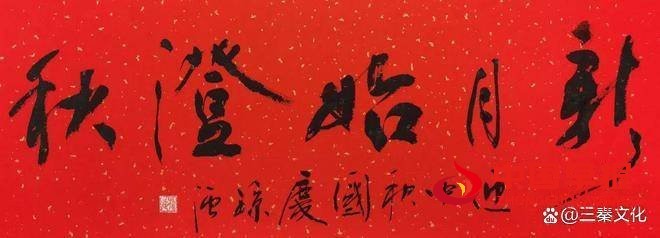 新月始澄秋
迎中秋國慶
@三秦文化